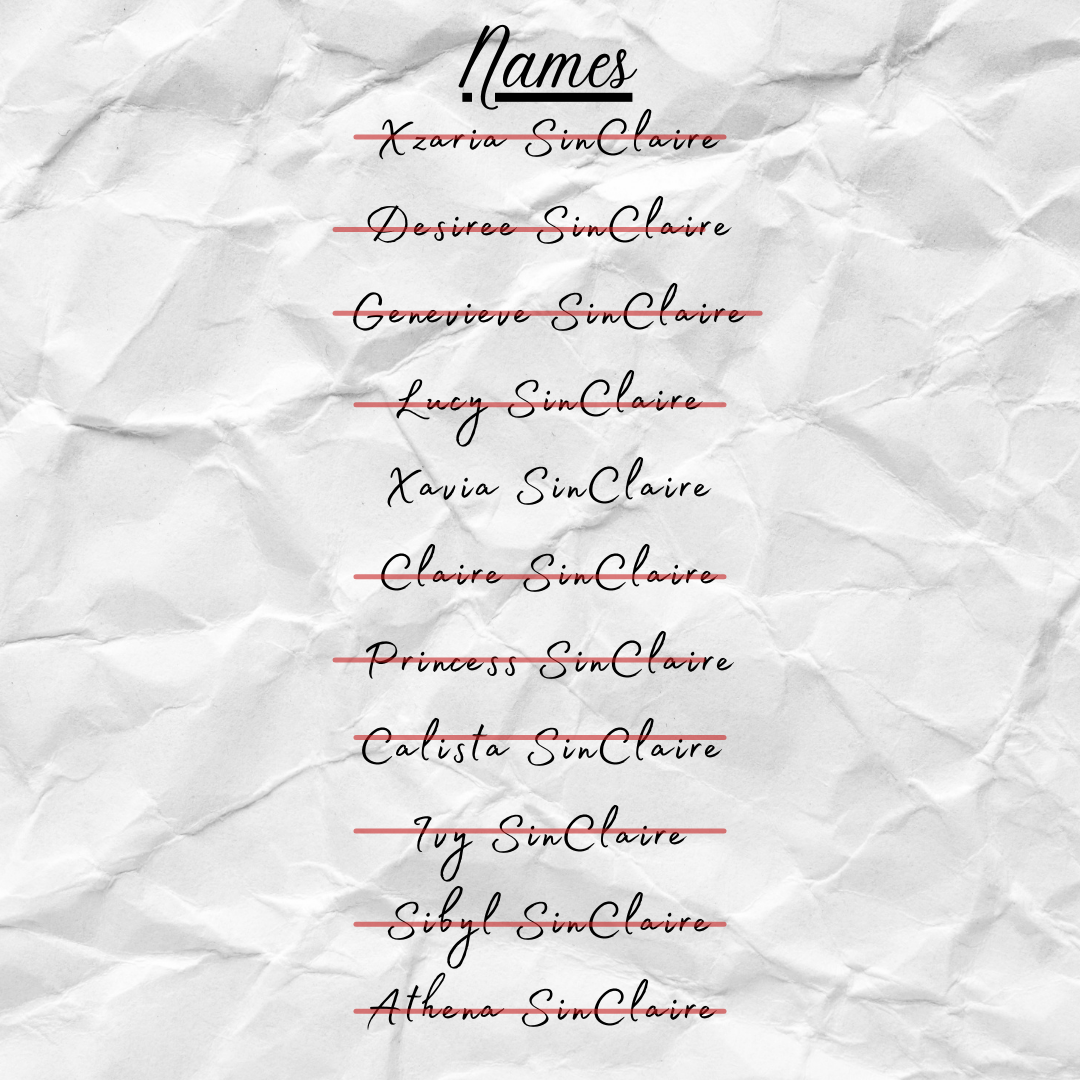 Names
Xzaria SinClaire
Desiree SinClaire
Genevieve SinClaire
Lucy SinClaire
Xavia SinClaire
Claire SinClaire
Princess SinClaire
Calista SinClaire
Ivy SinClaire
Sibyl SinClaire
Athena SinClaire